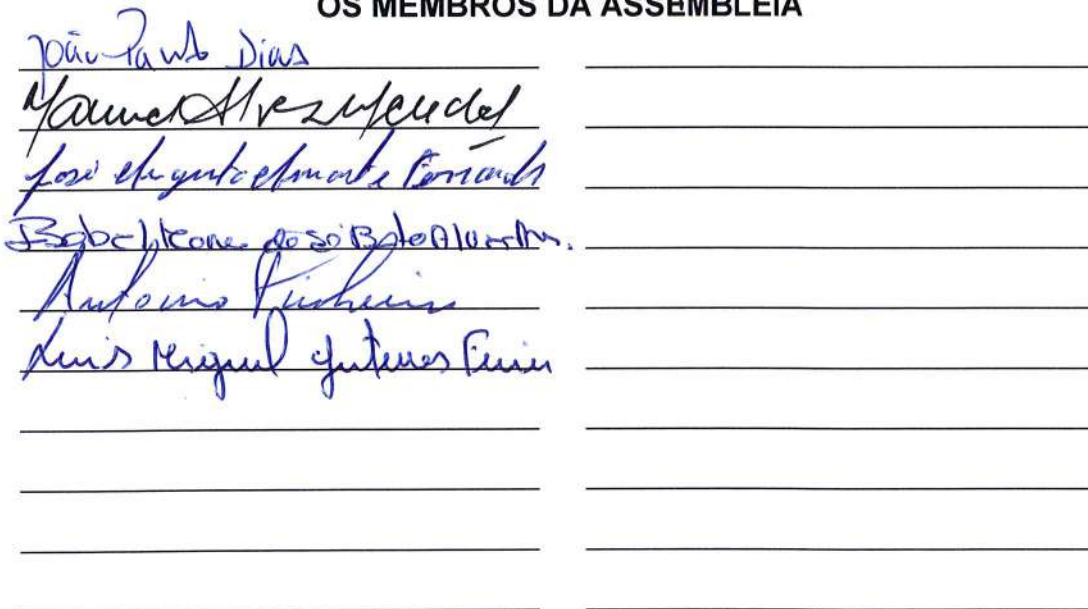 OS MEMBROS DA ASSEMBLEIA
João Paulo Dias
Manuel Alves Mendes
José Augusto Duarte Fernandes
José
António Pinheiro
Luis Miguel Antunes